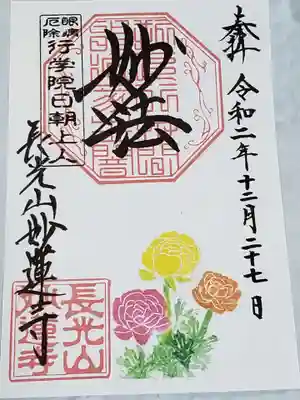 奉拝
令和二年十二月二十七日
妙法
眼病
厄除
行学院日朝上人
長光山妙蓮寺
長光山
妙蓮寺